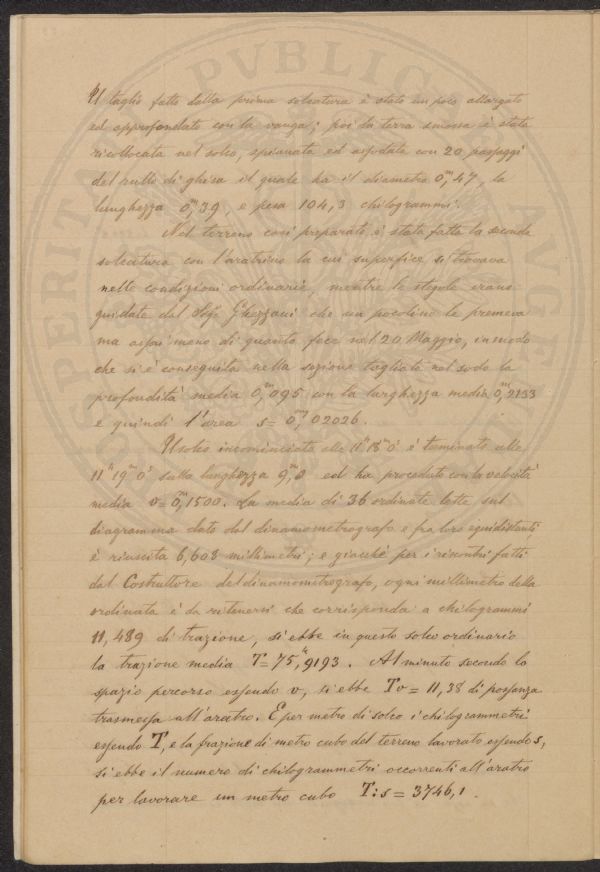 Il taglio fatto dalla prima solcatura è stato un poco allargato
ed approfondato con la vanga; poi la terra smossa è stata
ricollocata nel solco, spianata ed assodata con 20 passaggi
del rullo di ghisa il quale ha il diametro 0,ᵐ47, la
lunghezza 0,ᵐ39, e pesa 104,3 chilogrammi.
Nel terreno così preparato è stata fatta la seconda
solcatura con l'aratrino la cui superficie si trovava
nelle condizioni ordinarie, mentre le stegole erano
guidate dal Sigʳ Ghezzani che un pocolino le premeva
ma assai meno di quanto fece nel 20 Maggio, in modo
che si è conseguita nella sezione tagliata nel sodo la
profondità media 0,ᵐ095 con la larghezza media 0,ᵐ2133
e quindi l'area s = 0,ᵐ02026.
Il solco incominciato alle 11ʰ 18ᵐ 0ˢ è terminato alle
11ʰ 19ᵐ 0ˢ sulla lunghezza 9,ᵐ0 ed ha proceduto con la velocità
media v = 0,ᵐ1500. La media di 36 ordinate lette sul
diagramma dato dal dinamometrografo e fra loro equidistanti,
è riuscita 6,608 millimetri; e giacchè per i riscontri fatti
dal Costruttore del dinamometrografo, ogni millimetro della
ordinata è da ritenersi che corrisponda a chilogrammi
11,489 di trazione, si ebbe in questo solco ordinario
la trazione media T = 75,ᵏ9193. Al minuto secondo lo
spazio percorso essendo v, si ebbe Tv = 11,38 di possanza
trasmessa all'aratro. E per metro di solco i chilogrammetri
essendo T, e la frazione di metro cubo del terreno lavorato essendo s,
si ebbe il numero di chilogrammetri occorrenti all'aratro
per lavorare un metro cubo T:s = 3746,1.
PVBLICA